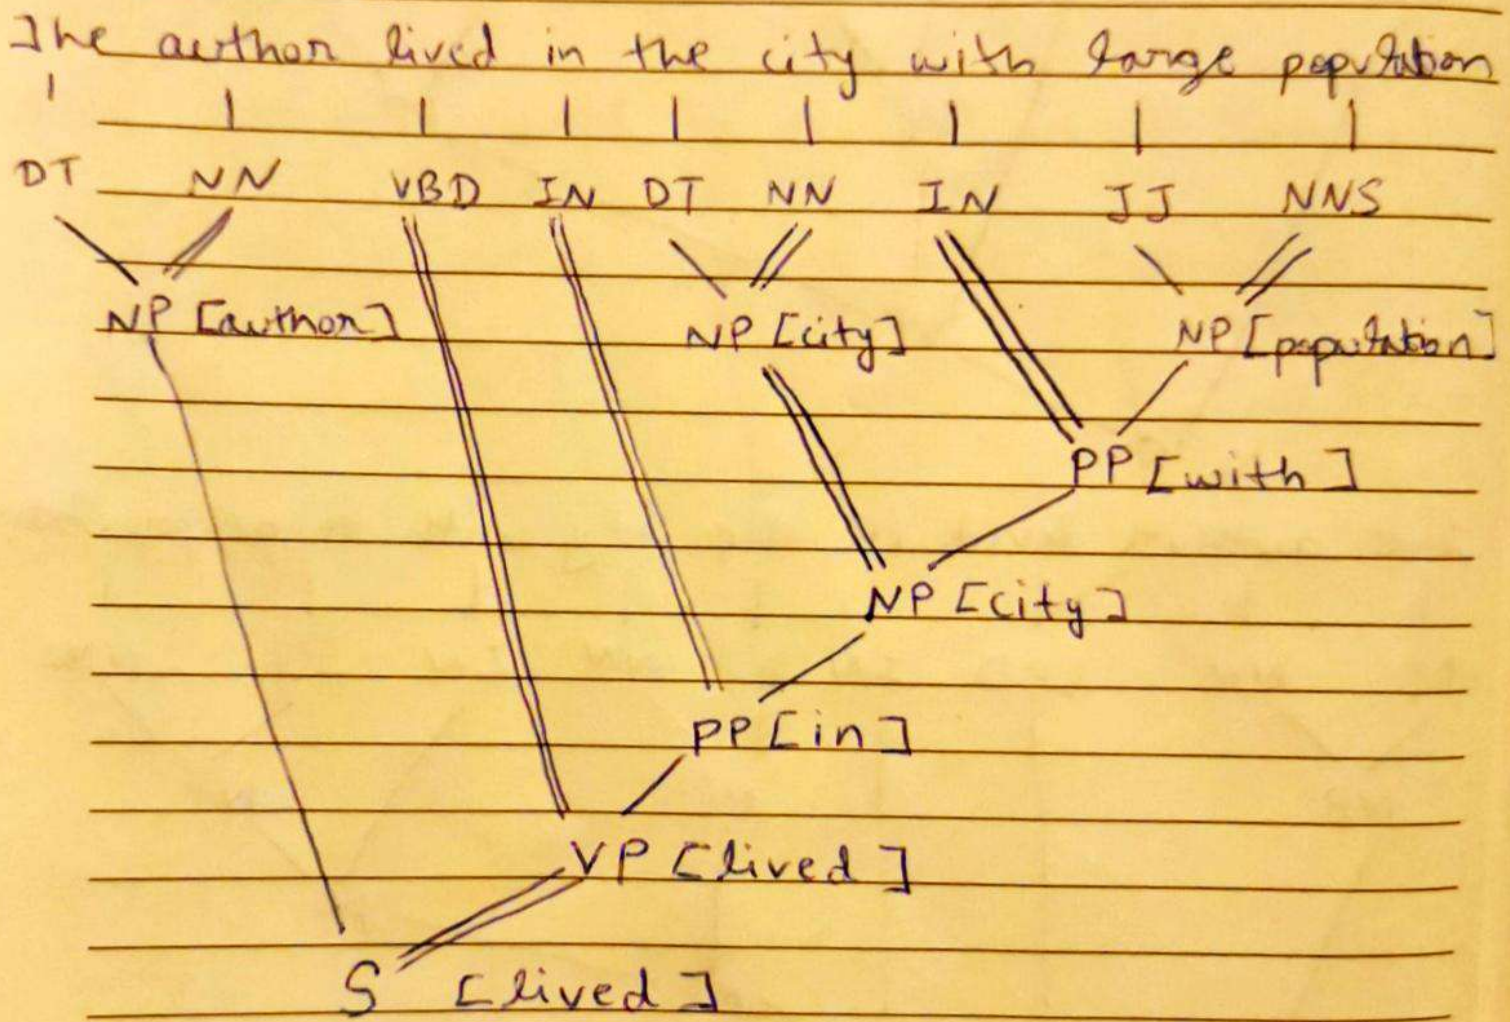 The author lived in the city with large population
DT NN VBD IN DT NN IN JJ NNS
NP [author] NP [city] NP [population]
PP [with]
NP [city]
PP [in]
VP [lived]
S [lived]